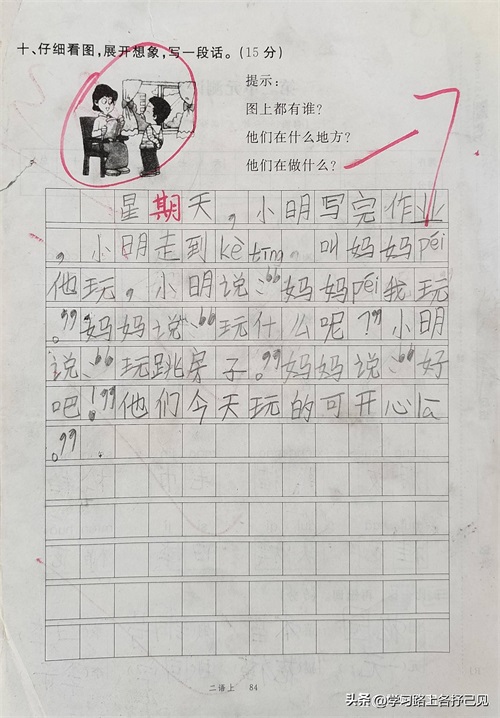 十、仔细看图,展开想象,写一段话。(15分)
提示:
图上都有谁?
他们在什么地方?
他们在做什么?
星期天,小明写完作业
,小明走到kè tīng。叫妈妈péi
他玩,小明说:“妈妈péi我玩
。”妈妈说:“玩什么呢?”小明
说:“玩跳房子。”妈妈说:“好
吧!”他们今天玩的可开心lā
。”
二语上 84
头条 @学习路上各抒己见